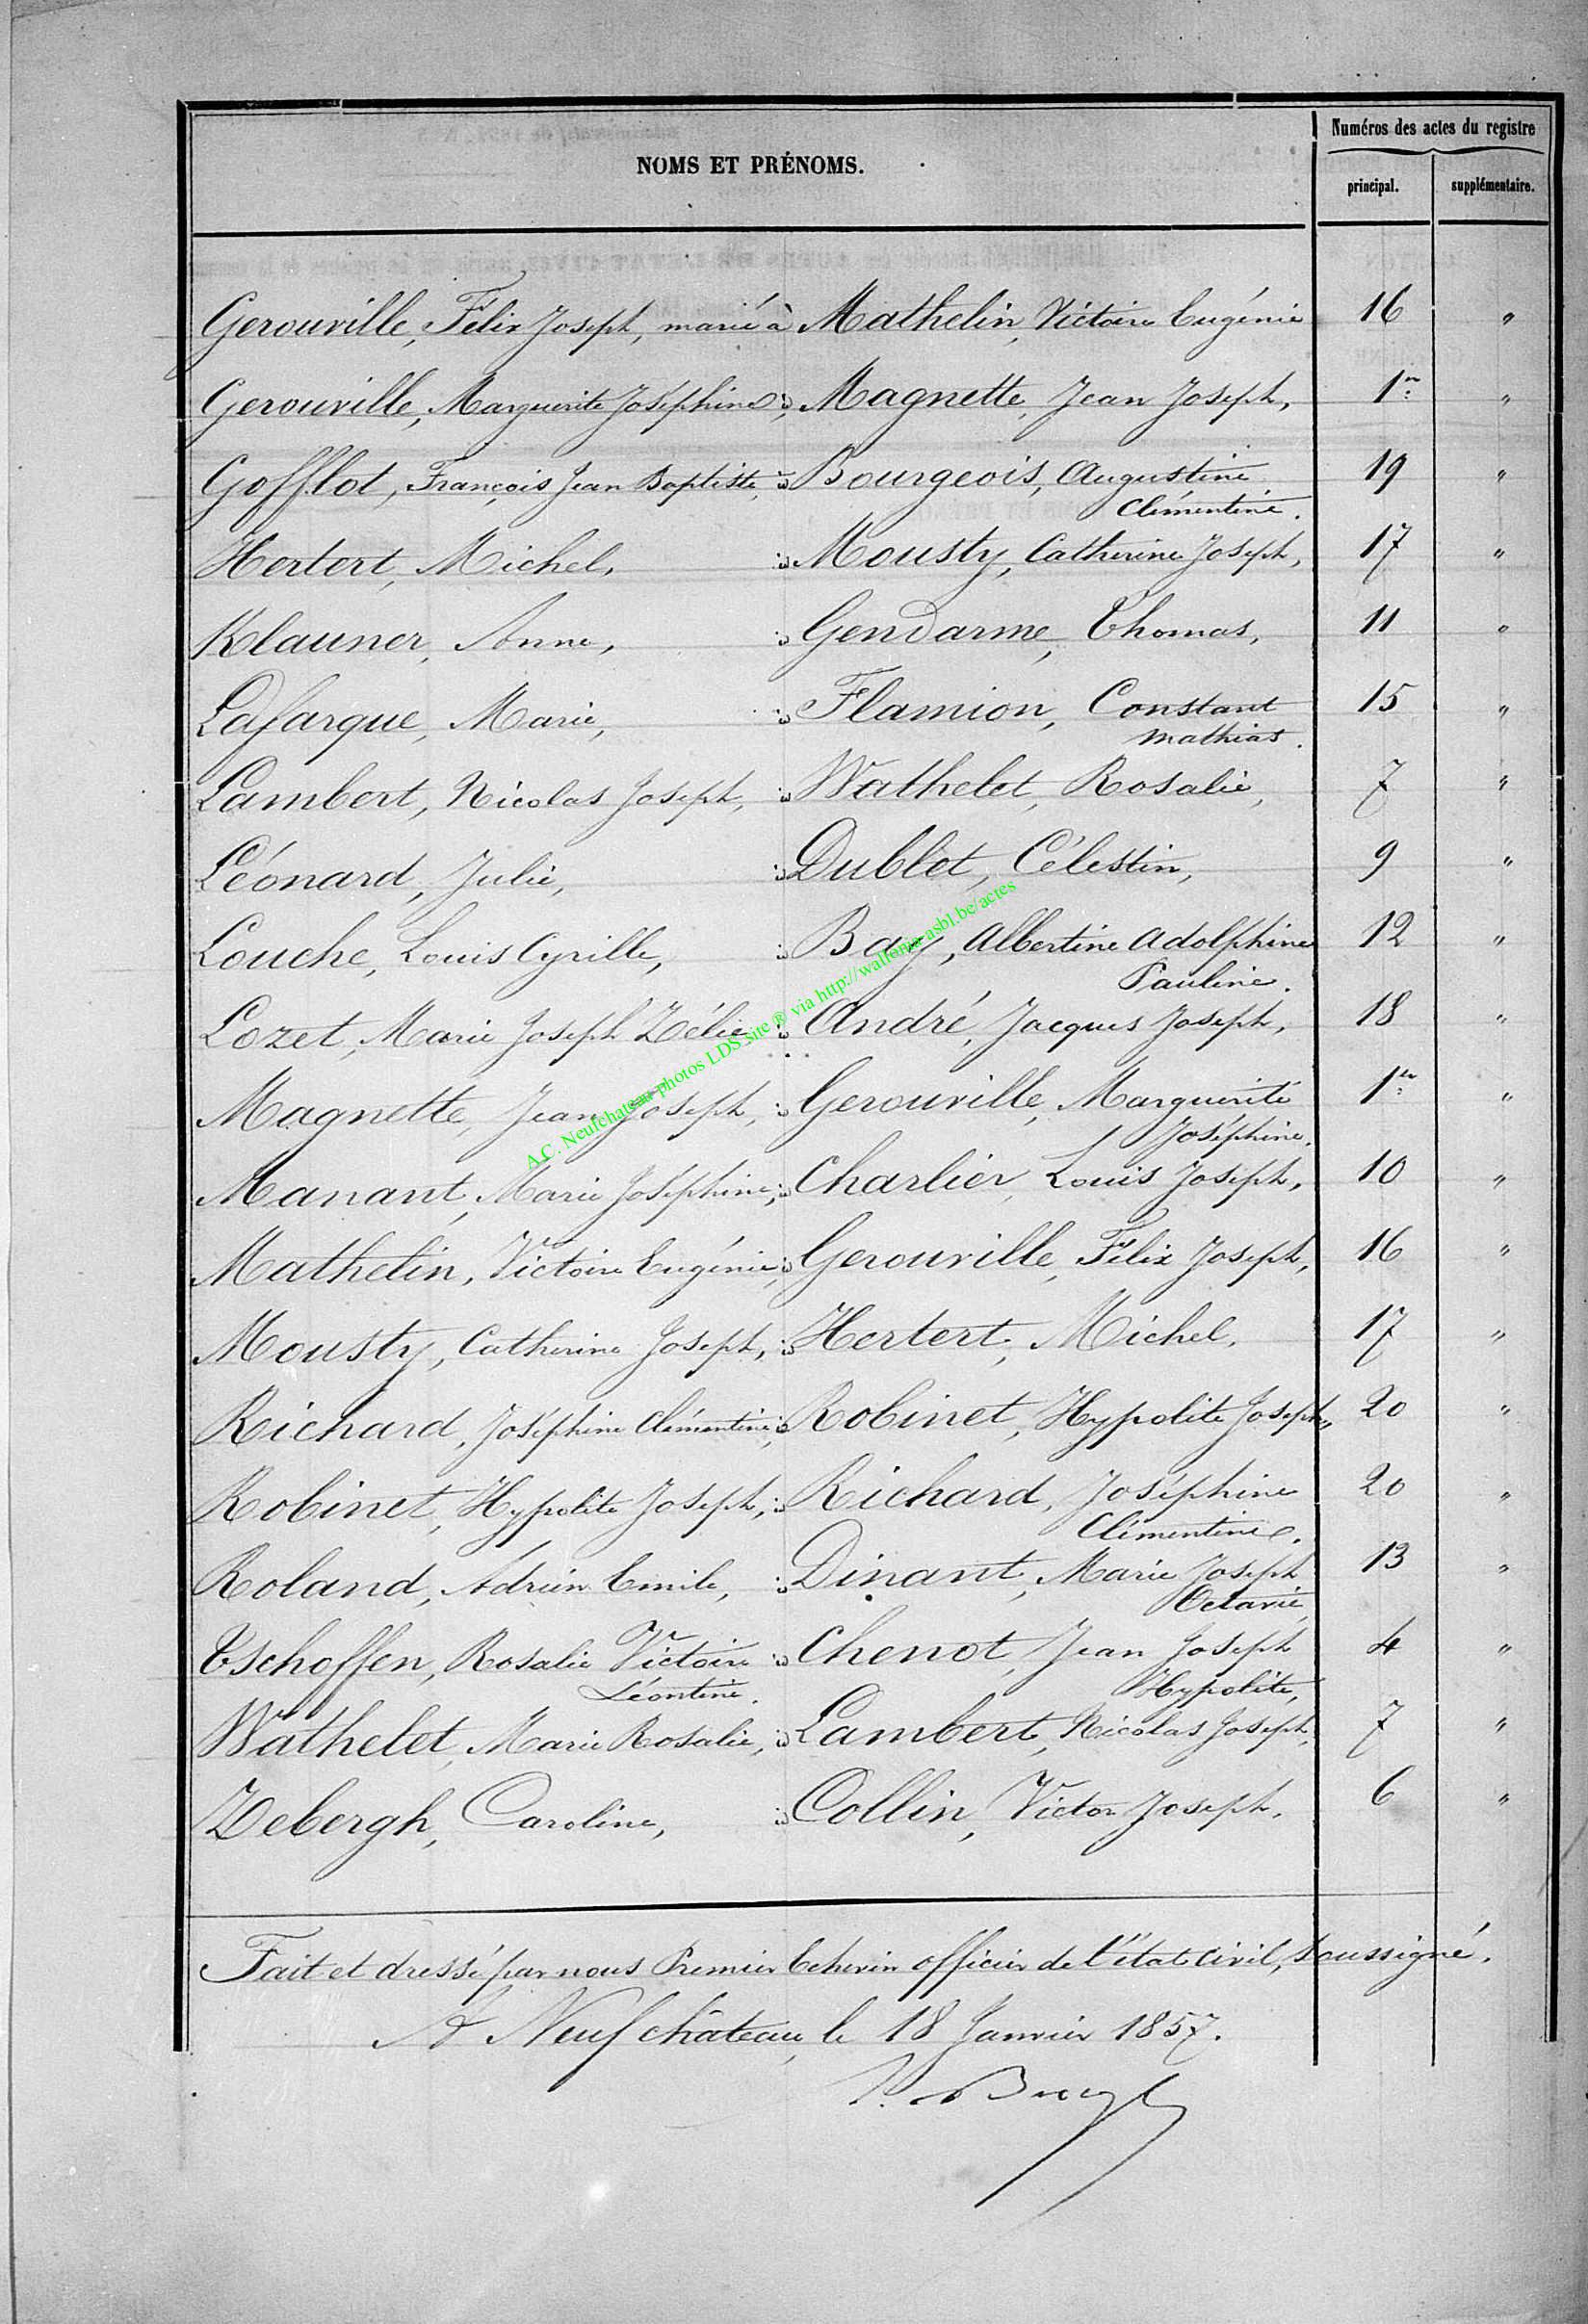 Numéros des actes du registre
NOMS ET PRÉNOMS.
principal. supplémentaire.
Gerouville, Félix Joseph, marié à Mathelin, Victoire Eugénie 16 "
Gerouville, Marguerite Joséphine, id Magnette, Jean Joseph, 1er "
Gofflot, François Jean Baptiste, id Bourgeois, Augustine 19 "
Clémentine.
Hertert, Michel, id Mousty, Catherine Joseph, 17 "
Klauner, Anne, id Gendarme, Thomas, 11 "
Lafarque, Marie, id Flamion, Constant 15 "
Mathias.
Lambert, Nicolas Joseph, id Wathelet, Rosalie, 7 "
Léonard, Julie, id Dublet, Célestin, 9 "
Louche, Louis Cyrille, id Bay, Albertine Adolphine 12 "
Pauline.
Lozet, Marie Joseph Zélie id André, Jacques Joseph, 18 "
Magnette, Jean Joseph, id Gerouville, Marguerite 1er "
Joséphine.
Manant, Marie Joséphine, id Charlier, Louis Joseph, 10 "
Mathelin, Victoire Eugénie, id Gerouville, Félix Joseph, 16 "
Mousty, Catherine Joseph, id Hertert, Michel. 17 "
Richard, Joséphine Clémentine, id Robinet, Hypolite Joseph, 20 "
Robinet, Hypolite Joseph, id Richard, Joséphine 20 "
Clémentine.
Roland, Adrien Emile, id Dinant, Marie Joseph 13 "
Octavie,
Tschoffen, Rosalie Victoire id Chenot, Jean Joseph 4 "
Léontine. Hypolite,
Wathelet, Marie Rosalie, id Lambert, Nicolas Joseph, 7 "
Zebergh, Caroline, id Collin, Victor Joseph. 6 "
Fait et dressé par nous Premier Echevin officier de l'état civil, soussigné.
A Neufchâteau, le 18 Janvier 1857.
A.C. Neufchateau photos LDS site ® via http://wallonia-asbl.be/actes